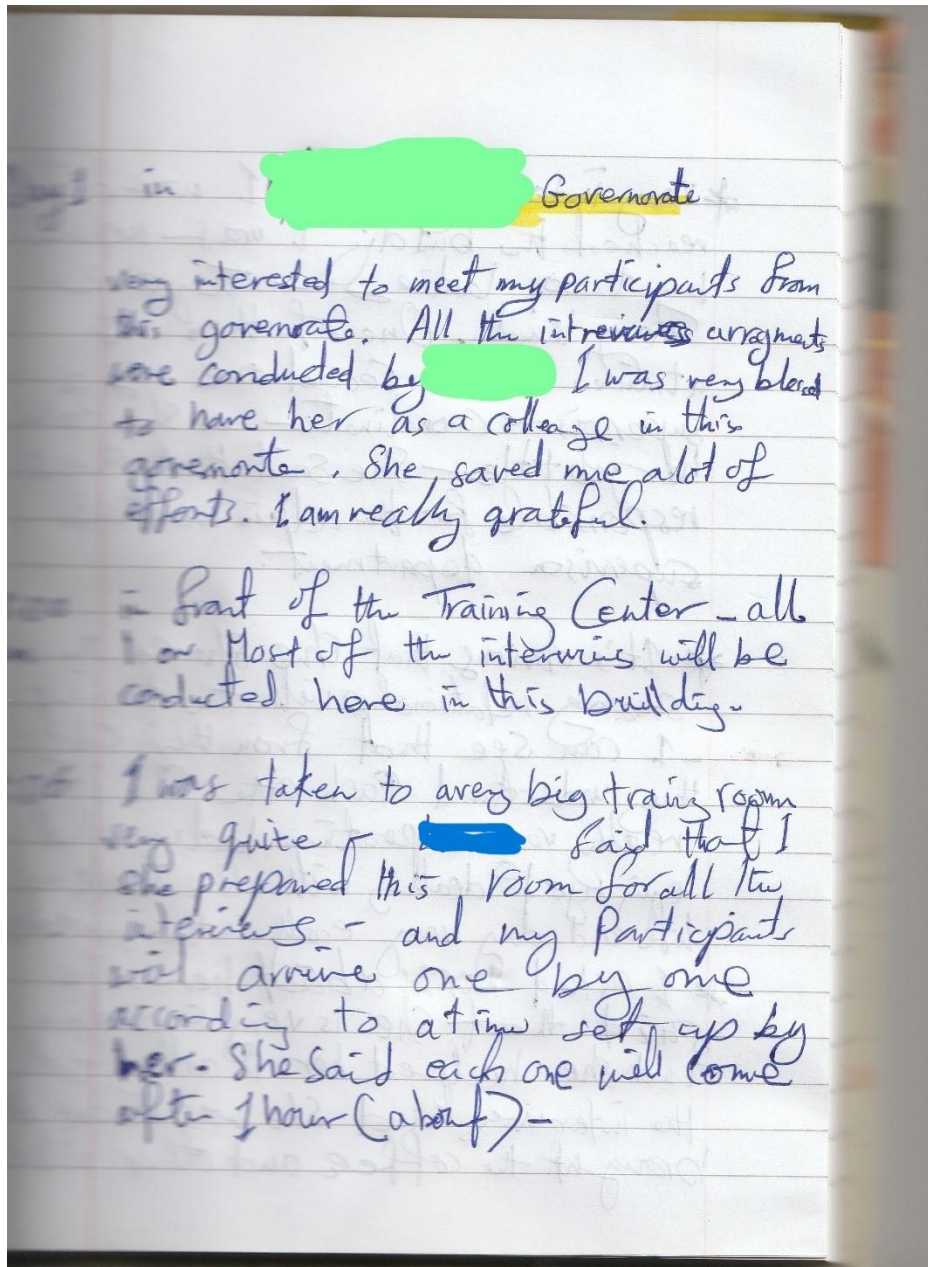 Day 1 in Governorate
very interested to meet my participants from
this governorate. All the intreviews arragments
were conducted by I was very blessed
to have her as a colleage in this
governonte. She saved me alot of
efforts. I am really grateful.
in front of the Training Center - all
or Most of the interviews will be
conducted here in this building.
I was taken to avery big traing room
very quite - said that I
she prepared this room for all the
interviews - and my Participants
will arrive one by one
according to atime set up by
her. She said each one will come
after 1 hour (about) -